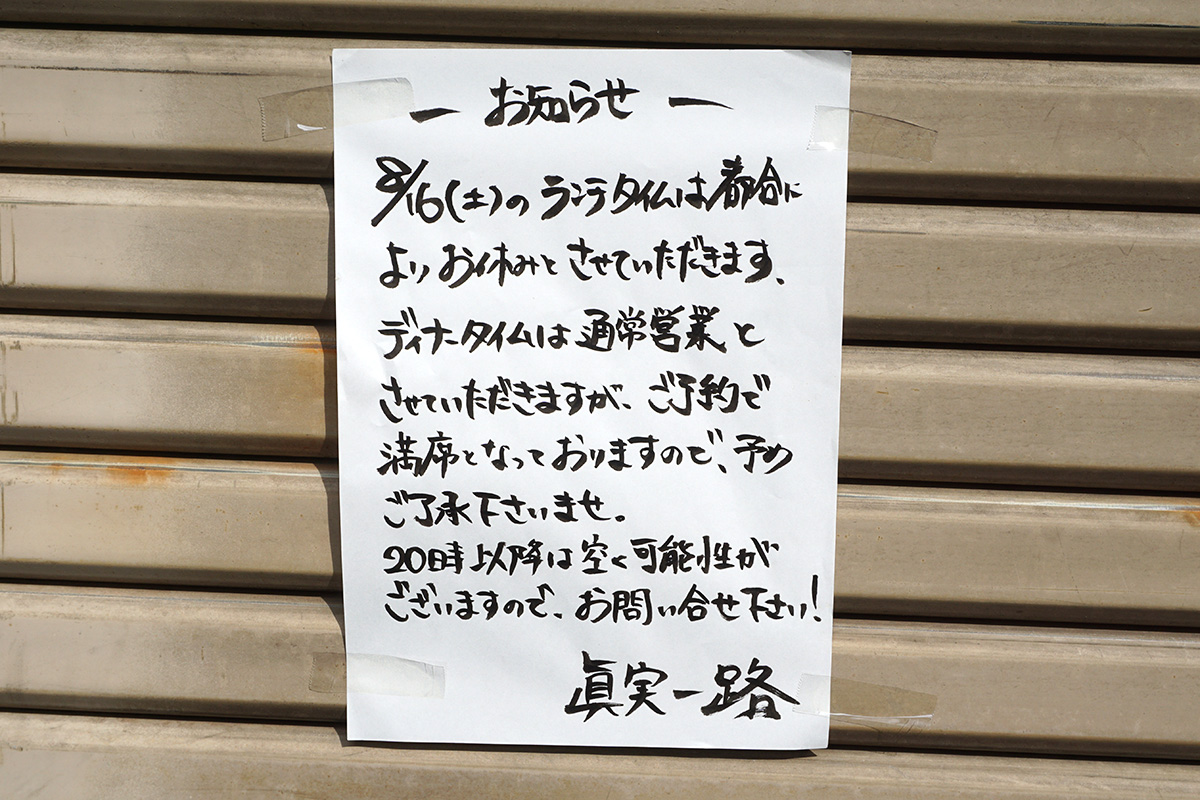 ― お知らせ ―
8/16(土)のランチタイムは都合に
よりお休みとさせていただきます、
ディナータイムは通常営業と
させていただきますが、ご予約で
満席となっておりますので、予め
ご了承下さいませ。
20時以降は空く可能性が
ございますので、お問い合せ下さい!
眞実一路